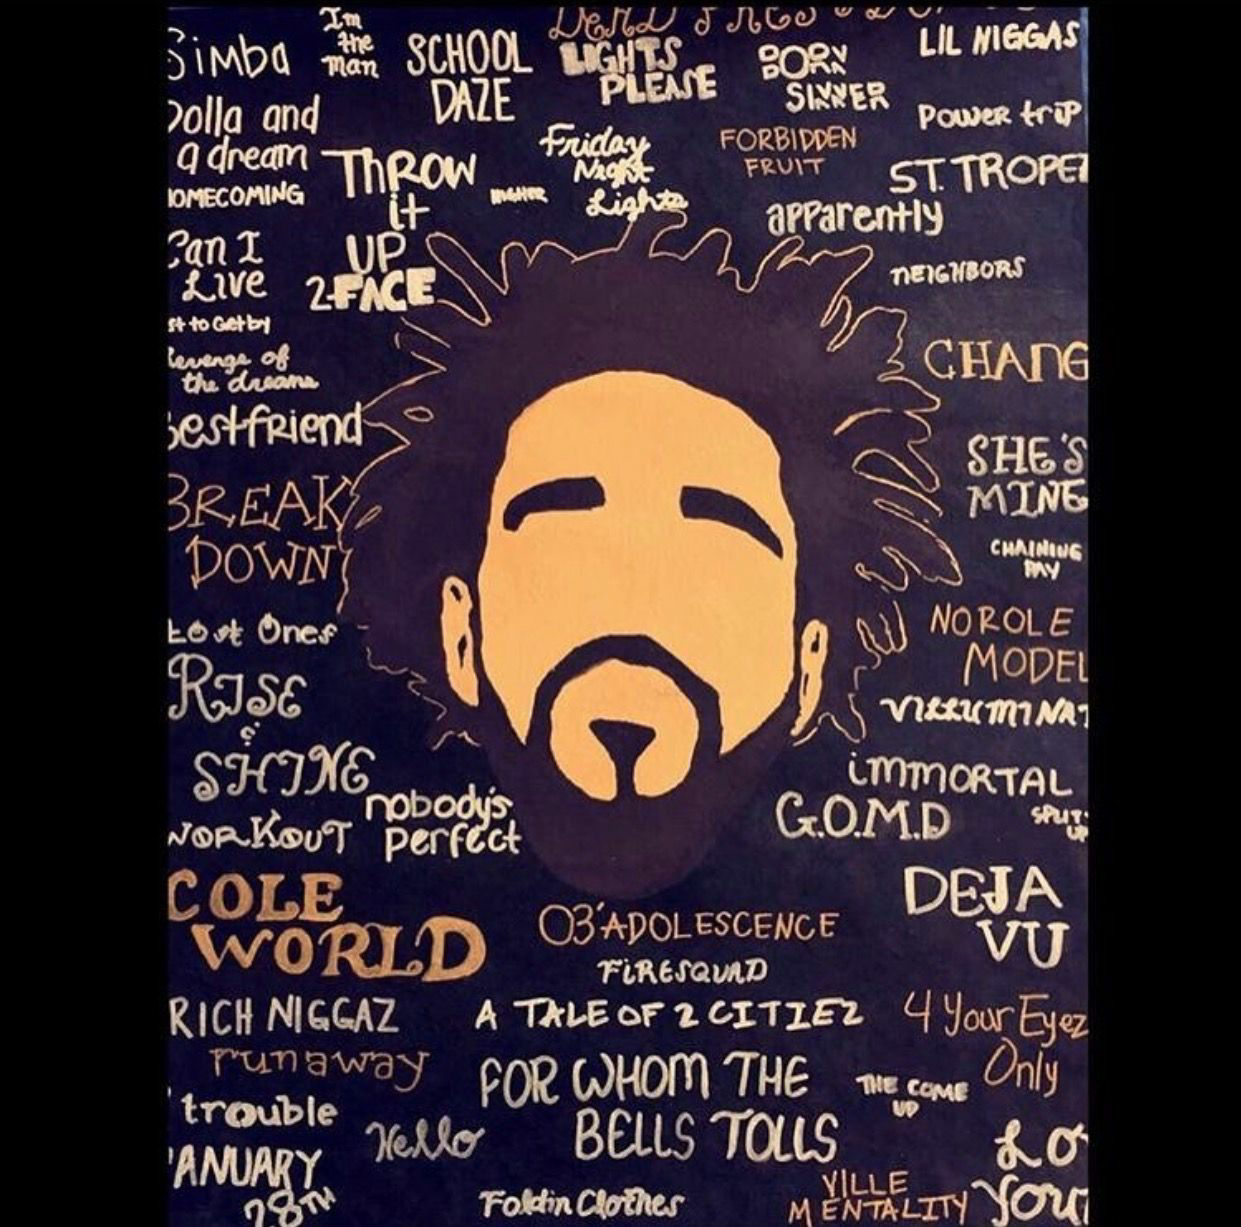 Simba
I'm
the
man
SCHOOL
DAZE
LIGHTS
PLEASE
BORN
SINNER
LIL NIGGAS
Dolla and
a dream
Power trip
Friday
Night
Lights
FORBIDDEN
FRUIT
THROW
it
UP
HIGHER
ST. TROPE
OMECOMING
apparently
Can I
Live
2-FACE
NEIGHBORS
st to Get by
Revenge of
the dreams
CHANG
Bestfriend
SHE'S
MINE
BREAK
DOWN
CHAINING
DAY
Lost Ones
NO ROLE
MODEL
RISE
&
SHINE
VILLUMINAT
IMMORTAL
nobody's
perfect
G.O.M.D
SPLIT
UP
WORKOUT
COLE
WORLD
DEJA
VU
03' ADOLESCENCE
FIRESQUAD
RICH NIGGAZ
A TALE OF 2 CITIEZ
4 Your Eyez
Only
runaway
FOR WHOM THE
BELLS TOLLS
THE COME
UP
trouble
Hello
LO
YOU
ANUARY
28TH
Foldin Clothes
VILLE
MENTALITY